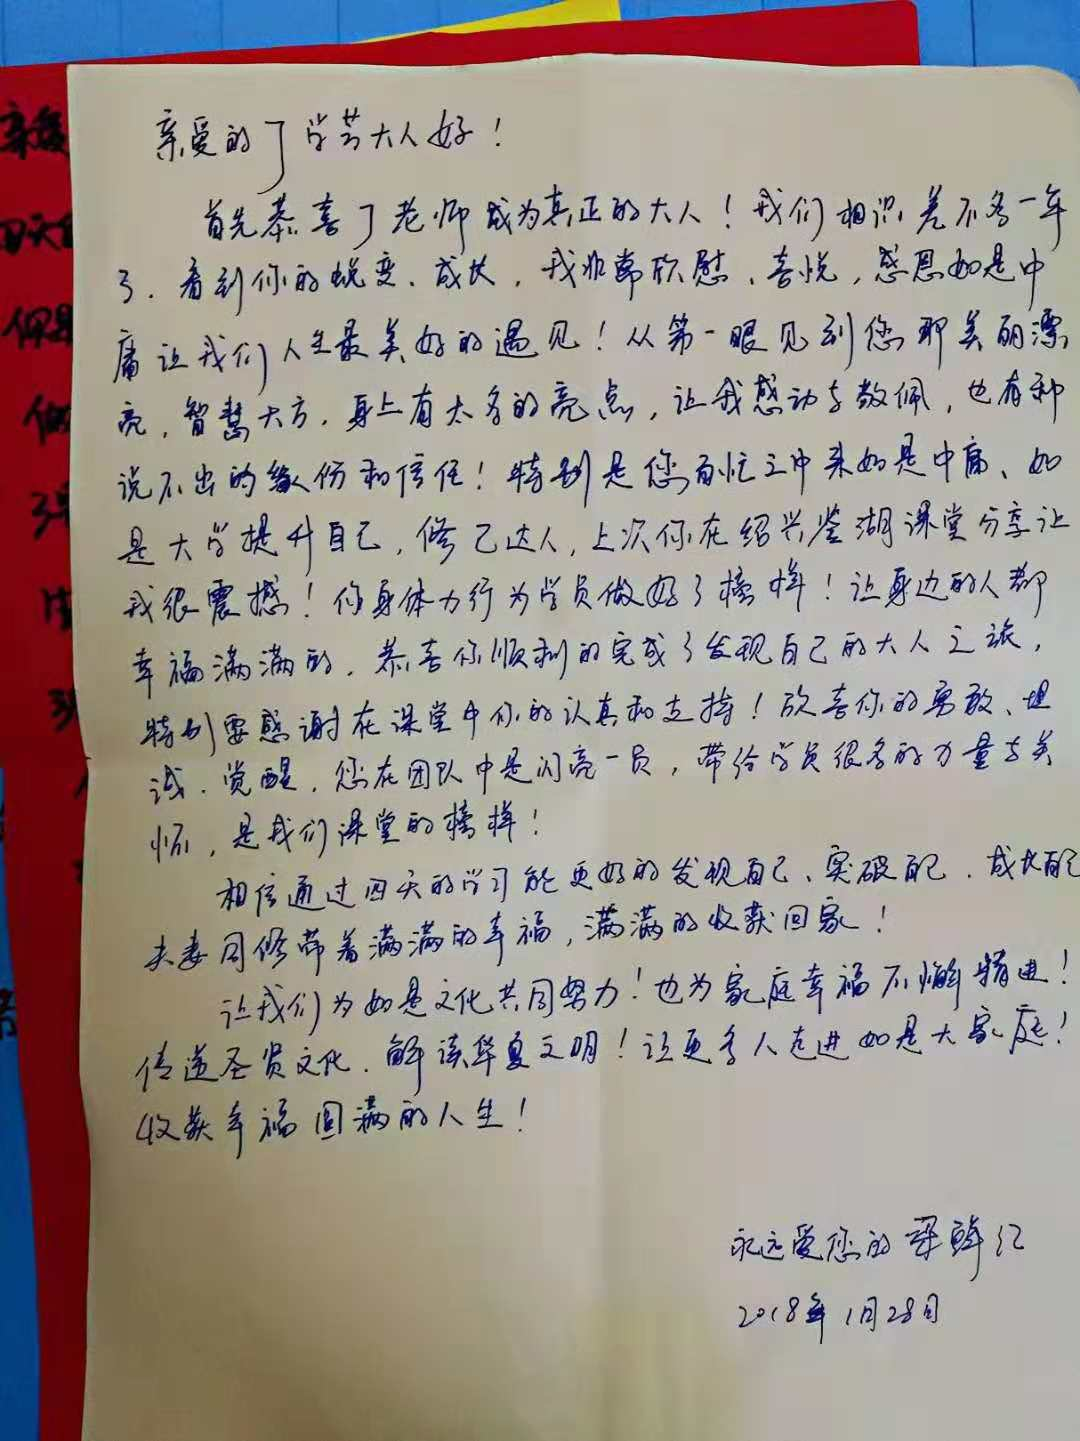 亲爱的丁学芸大人好！
首先恭喜丁老师成为真正的大人！我们相识差不多一年
了．看到你的蜕变、成长，我非常欣慰、喜悦，感恩如是中
庸让我们人生最美好的遇见！从第一眼见到您那美丽漂
亮，智慧大方，身上有太多的亮点，让我感动与敬佩，也有种
说不出的缘份和信任！特别是您百忙之中来如是中庸、如
是大学提升自己，修己达人，上次你在绍兴鉴湖课堂分享让
我很震撼！你身体力行为学员做好了榜样！让身边的人都
幸福满满的．恭喜你顺利的完成了发现自己的大人之旅，
特别要感谢在课堂中你的认真和支持！欣喜你的勇敢、坦
诚．觉醒，您在团队中是闪亮一员，带给学员很多的力量与关
怀，是我们课堂的榜样！
相信通过四天的学习能更好的发现自己、突破自己．成长自己
夫妻同修带着满满的幸福，满满的收获回家！
让我们为如是文化共同努力！也为家庭幸福不懈精进！
传递圣贤文化．解读华夏文明！让更多人走进如是大家庭！
收获幸福圆满的人生！
永远爱您的梁
2018年1月28日
亲爱
四天